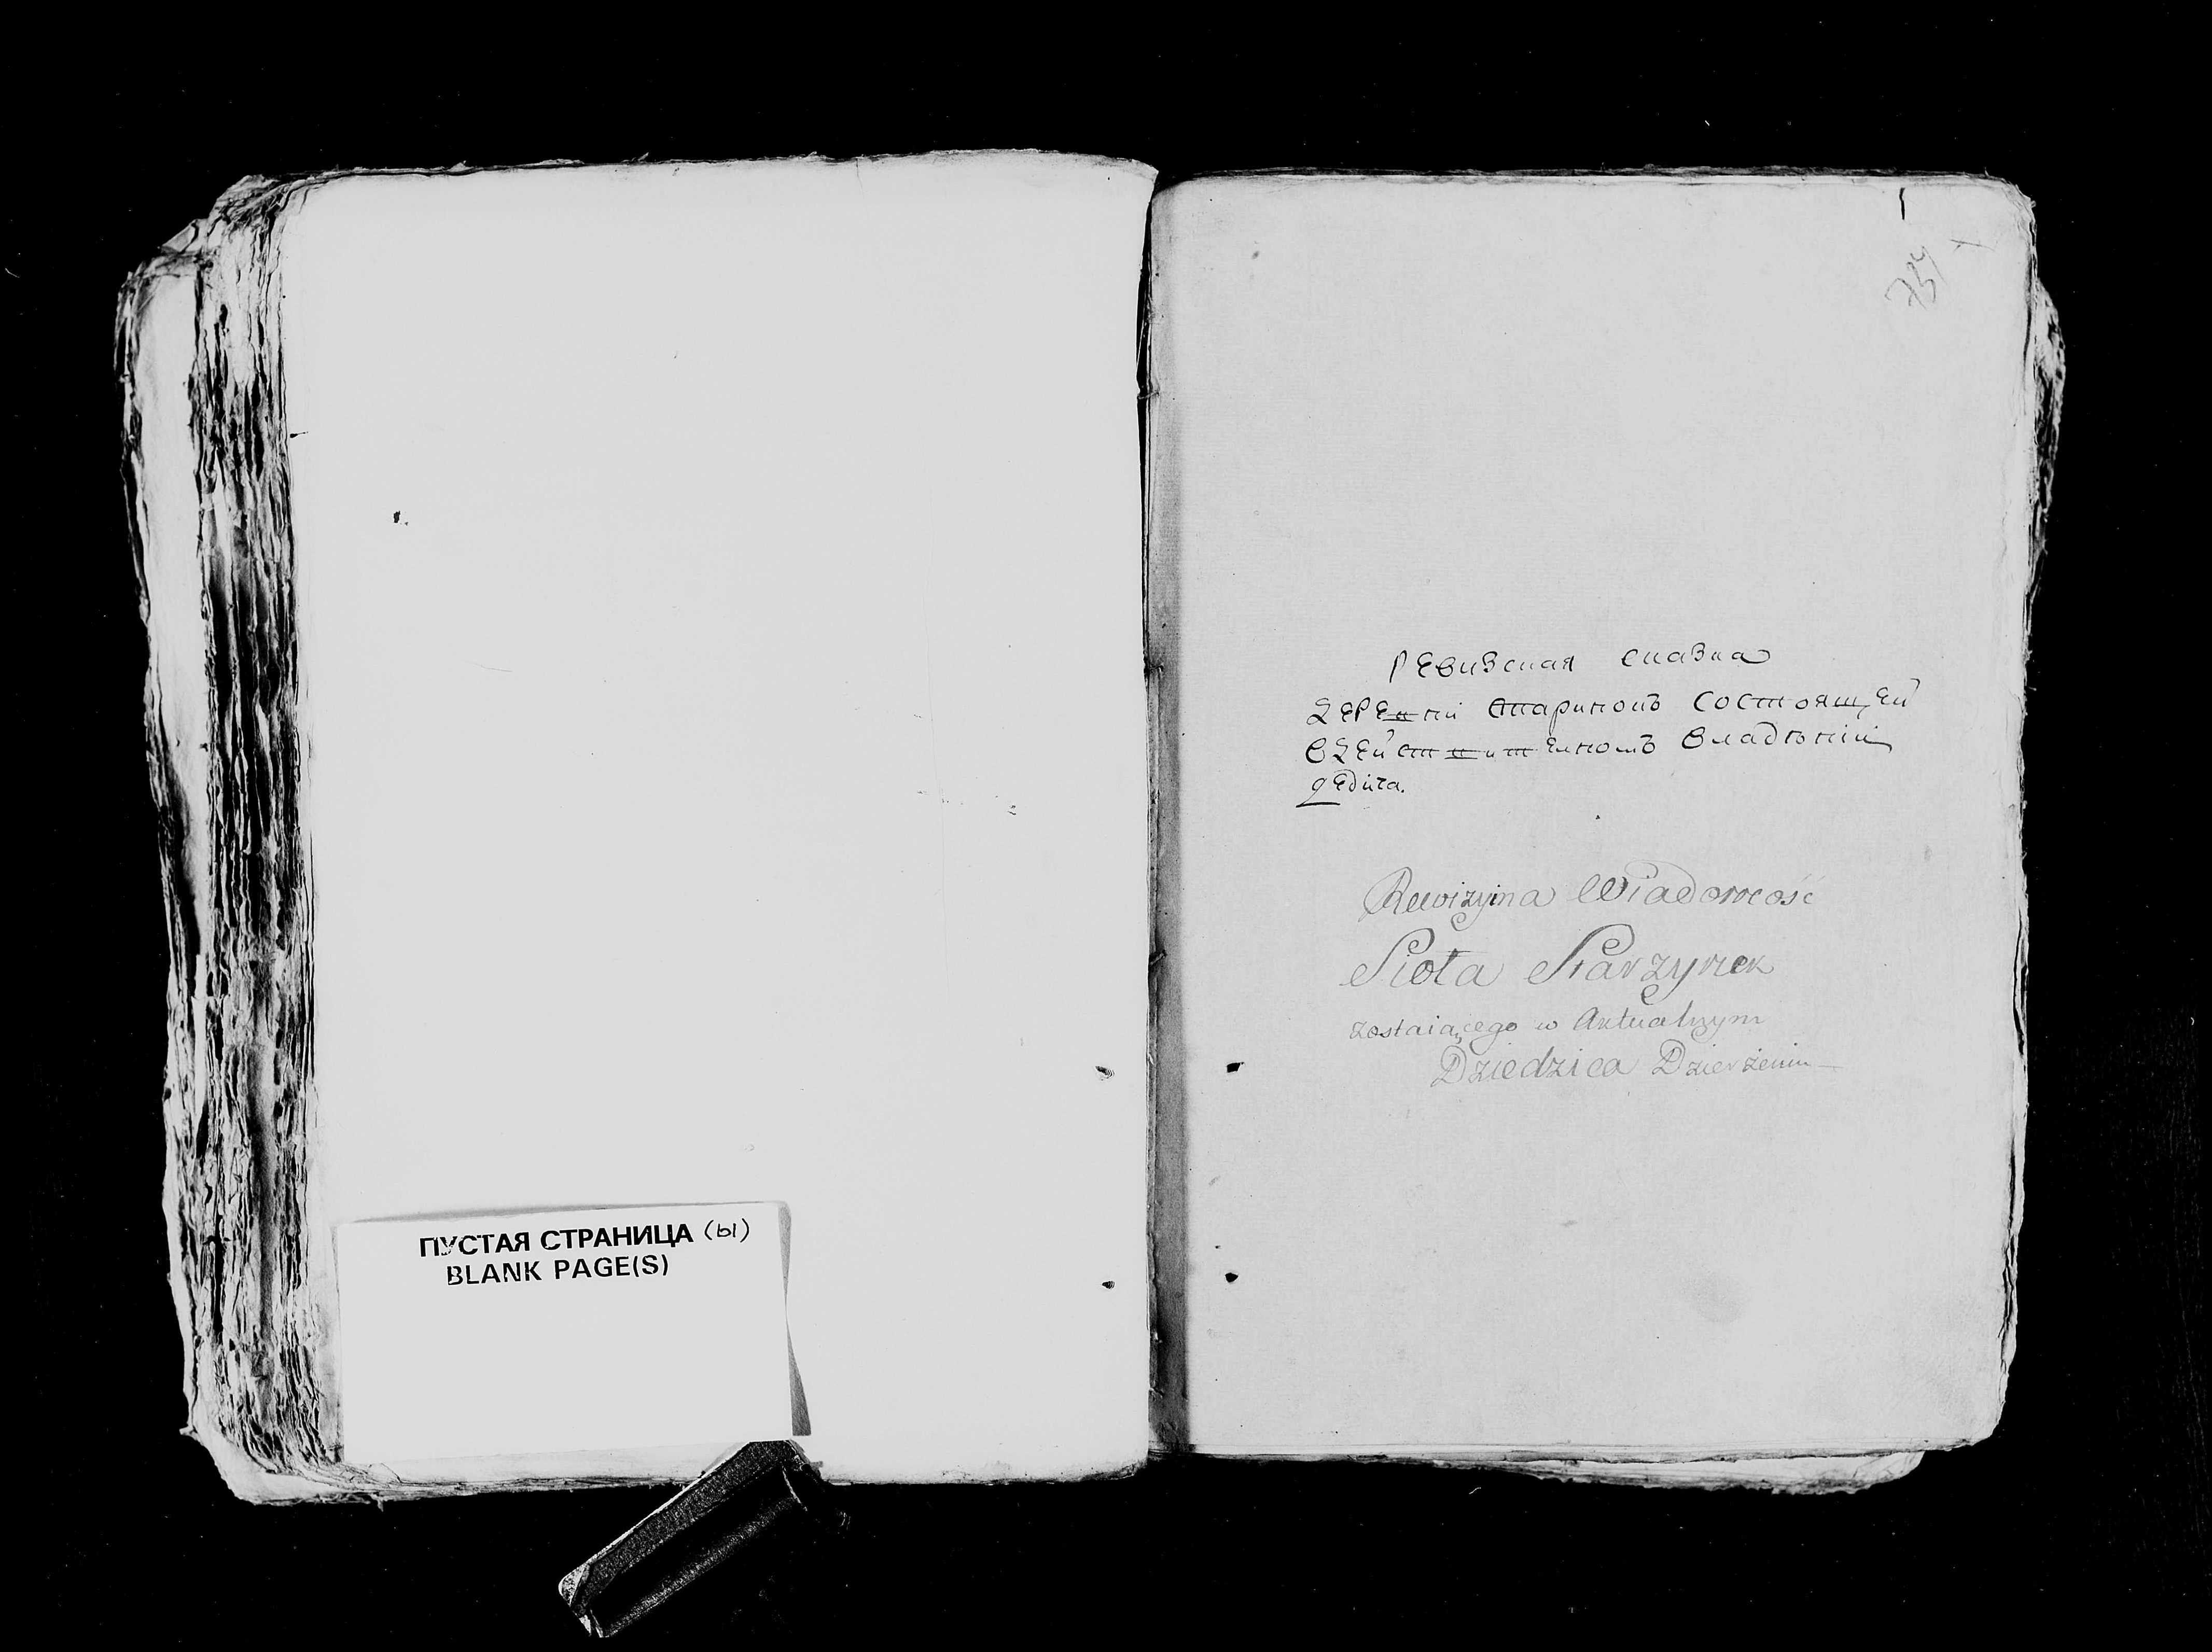 ПУСТАЯ СТРАНИЦА (ы)
BLANK PAGE(S)
734
Ревизская сказка
деревни Старинокъ состоящей
в действителномъ владѣнїи
дедича.
Rewizyina Wiadomość
Sioła Starzynek
zostaiącego w Aktualnym
Dziedzica Dzierżeniu